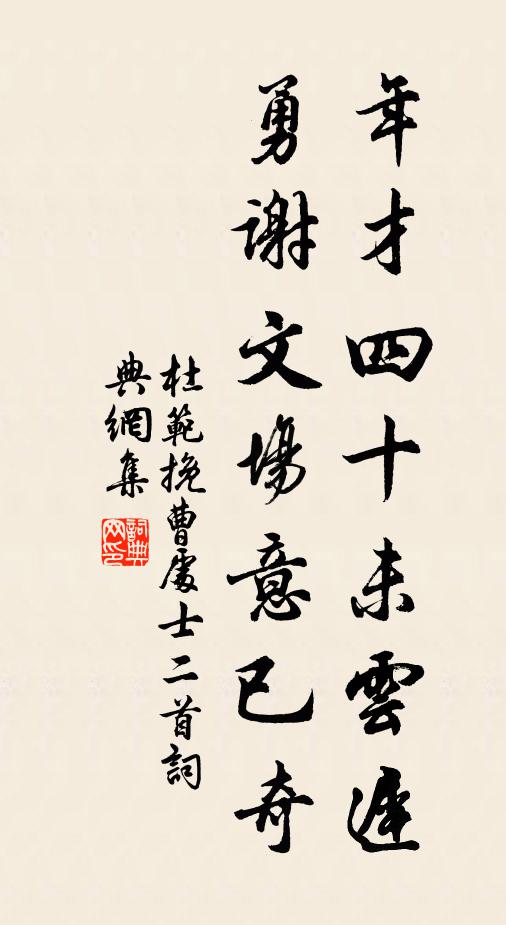 年才四十未雲遲
勇謝文場意已奇
杜範挽曹處士二首詞
典網集
詞典网印